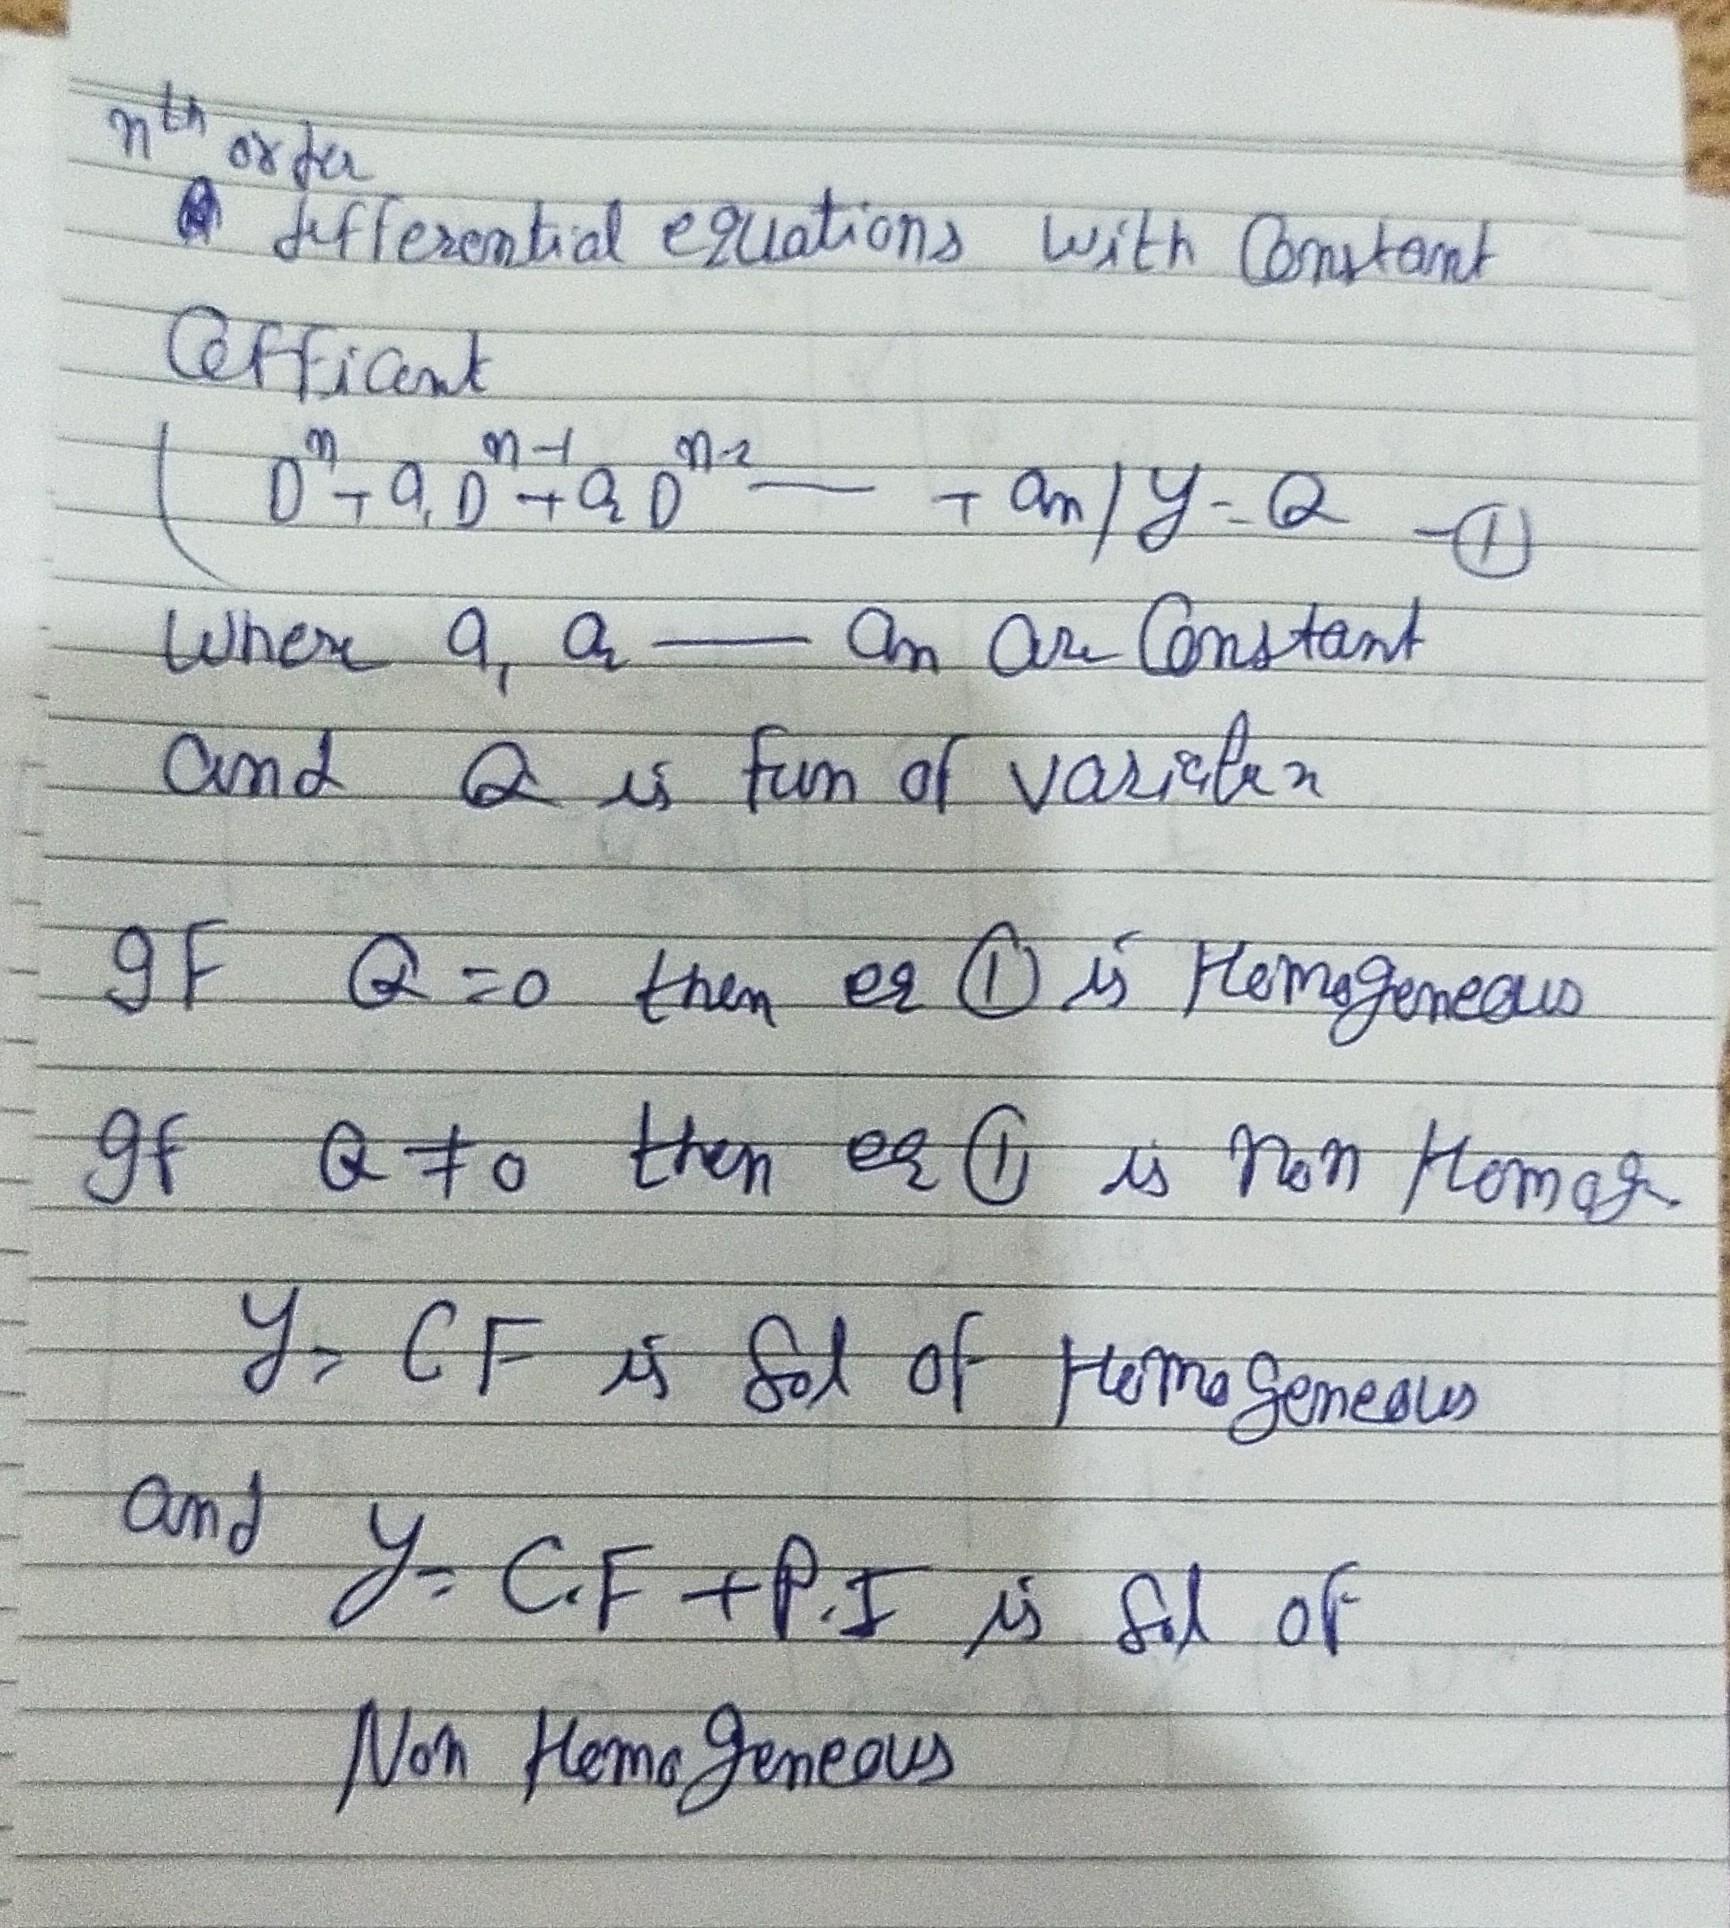 nth order
differential equations with Constant
Cefficent
(D^n + a₁D^n-1 + a₂D^n-2 — + an) y = Q -①
where a₁ a₂ — an are Constant
and Q is fun of variable x
If Q = 0 then eq ① is Homogeneous
If Q ≠ 0 then eq ① is Non Homog.
y = CF is Sol of Homogeneous
and y = C.F + P.I is Sol of
Non Homogeneous